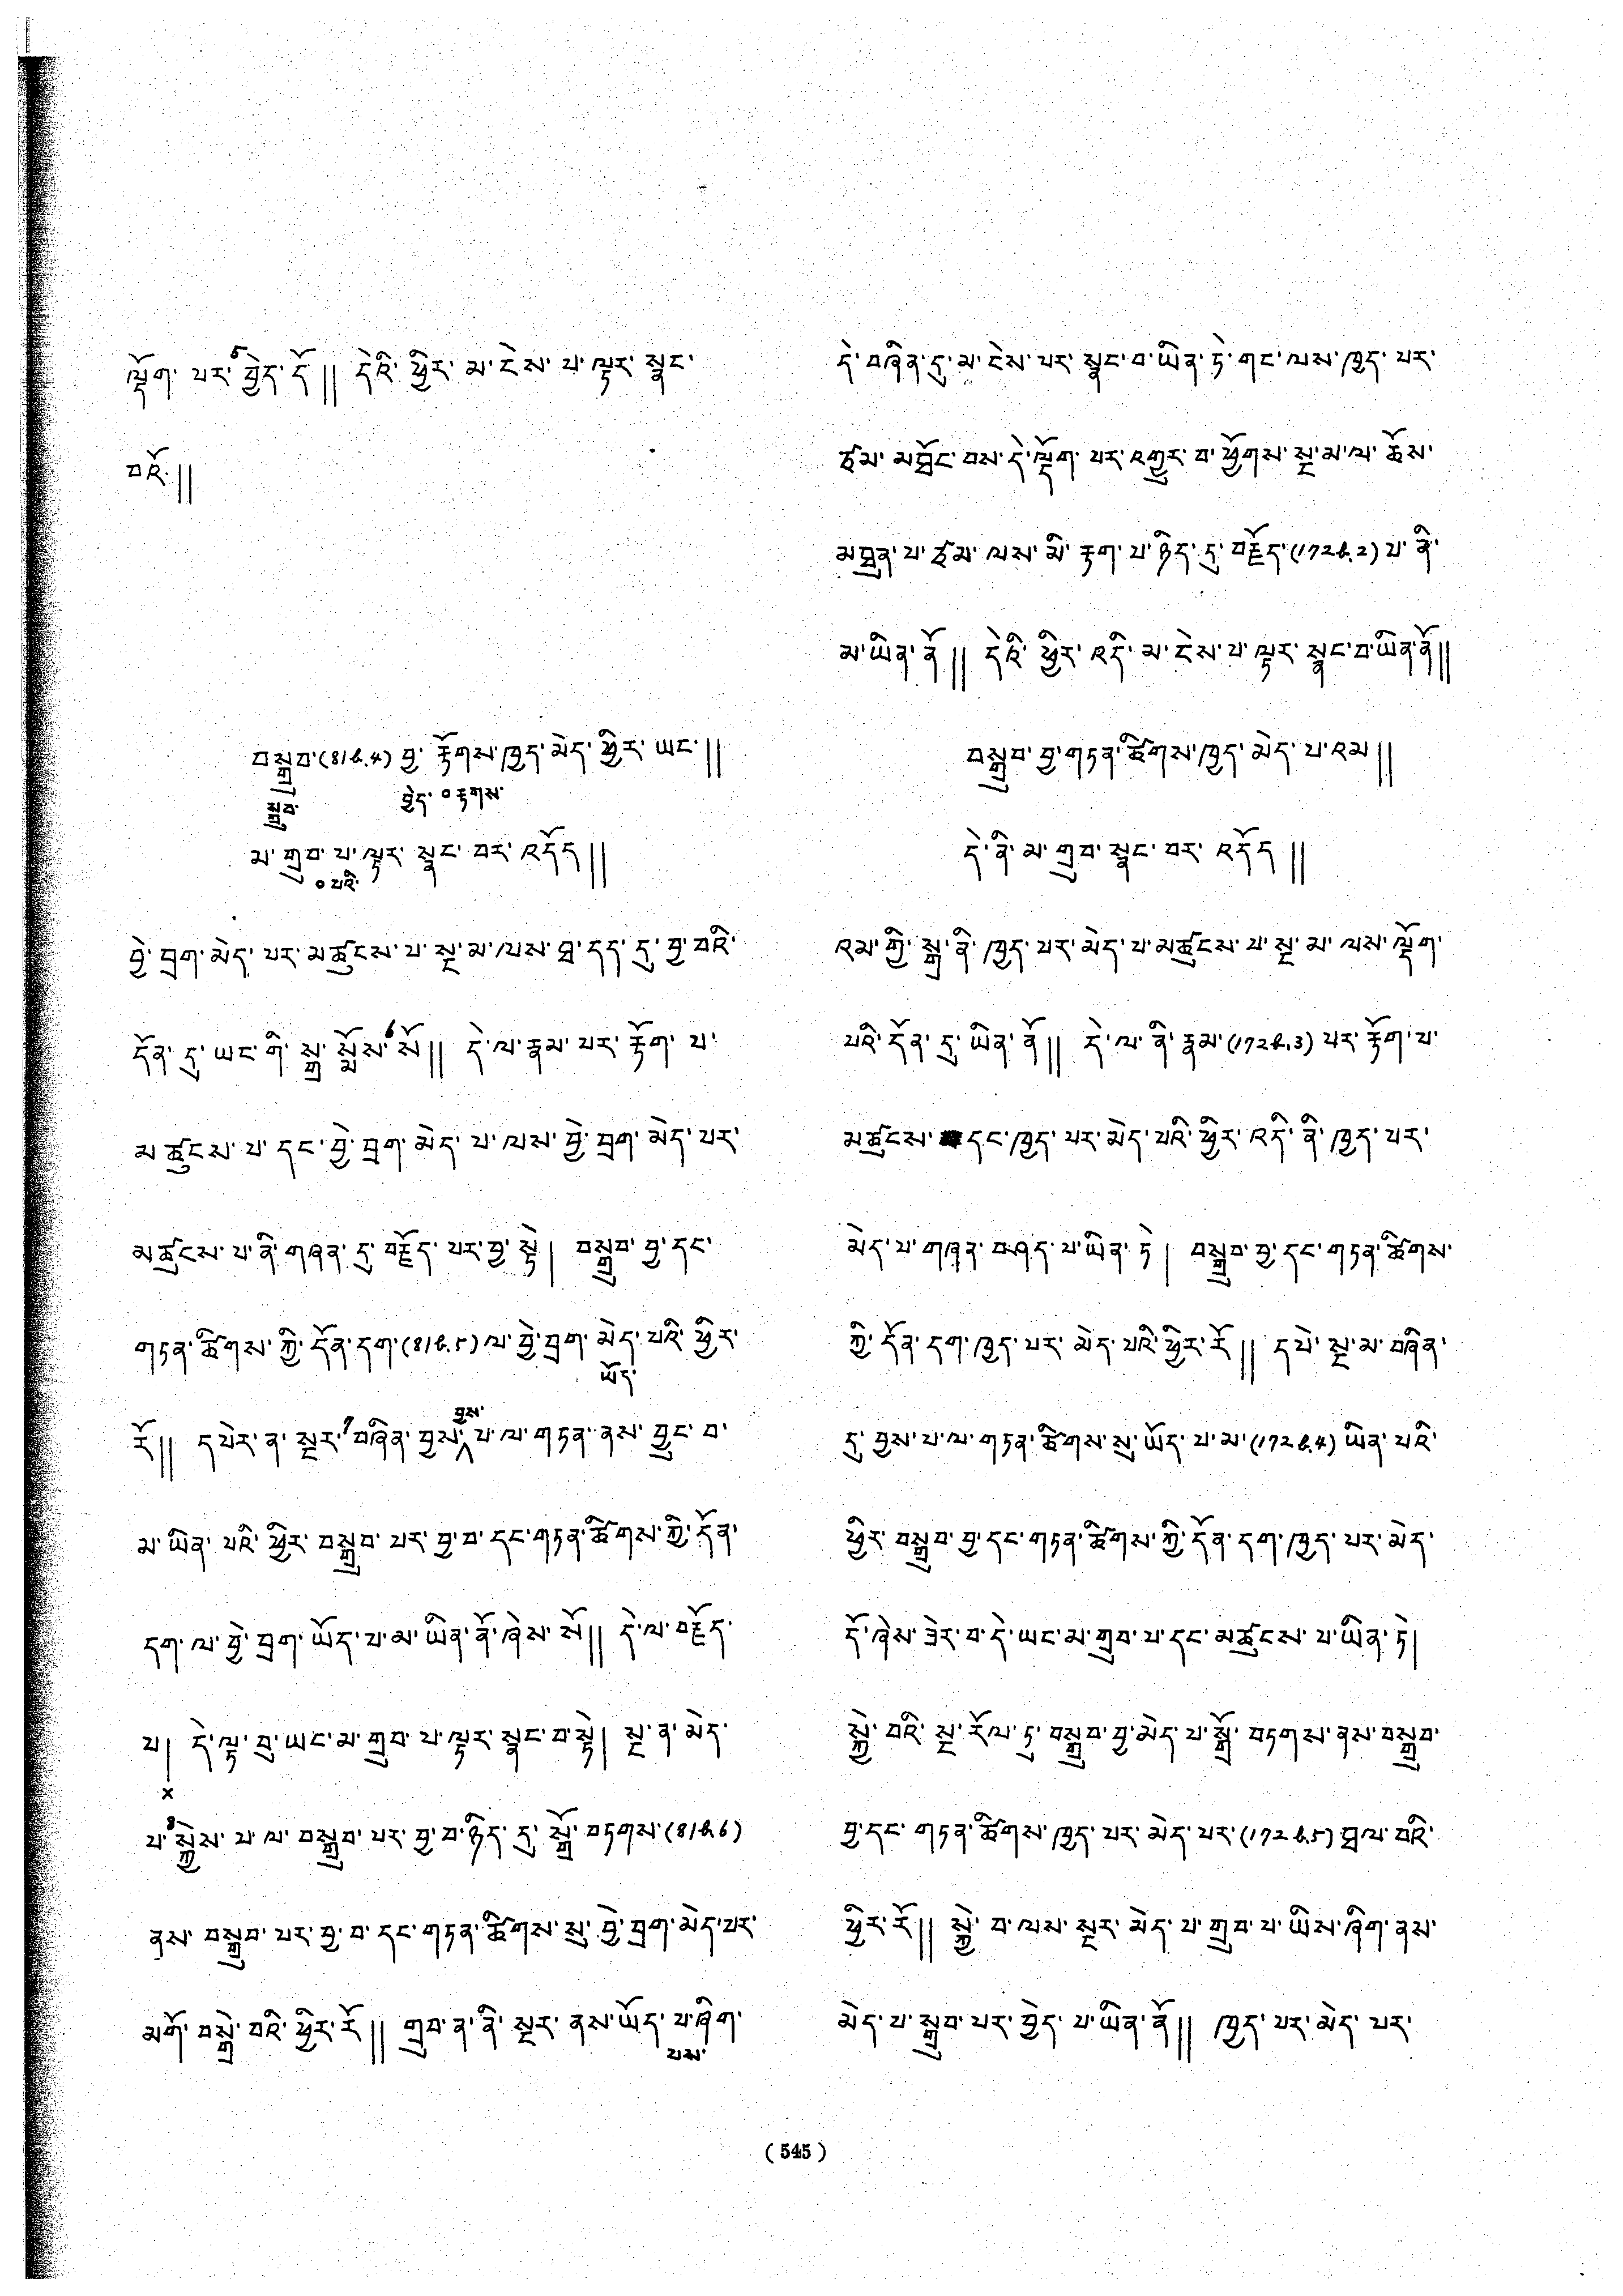 ལྡོག་ པར་⁵བྱེད་ དོ༎ དེའི་ ཕྱིར་ མ་ ངེས་ པ་ ལྟར་ སྣང་
བའོ་༎
བསྒྲུབ་(81b.4) བྱ་ རྟོགས་ཁྱད་མེད་ ཕྱིར་ ཡང་༎
སྒྲུབ་ བྱེད་ ॰རྟགས་
མ་ གྲུབ་ པ་ ལྟར་ སྣང་ བར་ འདོད༎
॰པའི་
བྱེ་ བྲག་ མེད་ པར་ མཚུངས་ པ་ སྔ་ མ་ ལས་ ཐ་ དད་ དུ་ བྱ་ བའི་
དོན་ དུ་ ཡང་ གི་ སྒྲ་ སྨོས་⁶སོ༎ དེ་ལ་རྣམ་ པར་ རྟོག་ པ་
མ ཚུངས་ པ་ དང་ བྱེ་ བྲག་ མེད་ པ་ ལས་ བྱེ་ བྲག་ མེད་ པར་
མཚུངས་ པ་ ནི་ གཞན་ དུ་ བརྗོད་ པར་ བྱ་ སྟེ། བསྒྲུབ་ བྱ་ དང་
གཏན་ཚིགས་ ཀྱི་ དོན་ དག་(81b.5)ལ་བྱེ་བྲག་ མེད་ པའི་ ཕྱིར་
ཡོད་
རོ༎ དཔེར་ ན་ སྔར་⁷བཞིན་ བྱས་ པ་ ལ་ གཏན་ ནས་ བྱུང་ བ་
བྱས་
མ་ ཡིན་ པའི་ ཕྱིར་ བསྒྲུབ་ པར་ བྱ་ བ་ དང་ གཏན་ཚིགས་ཀྱི་དོན་
དག་ ལ་ བྱེ་ བྲག་ ཡོད་ པ་ མ་ ཡིན་ ནོ་ཞེས་ སོ༎ དེ་ལ་ བརྗོད་
པ། དེ་ལྟ་ བུ་ ཡང་ མ་ གྲུབ་ པ་ ལྟར་ སྣང་ བ་ སྟེ། སྔ་ ན་ མེད་
×
པ་⁸སྐྱེས་ པ་ ལ་ བསྒྲུབ་ པར་ བྱ་ བ་ཉིད་ དུ་ སྒྲོ་ བཏགས་(81b.6)
ནས་ བསྒྲུབ་ པར་ བྱ་ བ་ དང་ གཏན་ ཚིགས་ སུ་ བྱེ་ བྲག་ མེད་པར་
མགོ་ བསྒྲེ་ བའི་ ཕྱིར་ རོ༎ གྲུབ་ ན་ ནི་ སྔར་ ནས་ ཡོད་ པ་ཞིག་
པས་
དེ་ བཞིན་ དུ་ མ་ ངེས་ པར་ སྣང་ བ་ ཡིན་ ཏེ་ གང་ ལས་ ཁྱད་ པར་
ཙམ་ མཐོང་ བས་ དེ་ལྡོག་ པར་ འགྱུར་ བ་ ཕྱོགས་ སྔ་མ་ལ་ ཆོས་
མཐུན་ པ་ ཙམ་ ལས་ མི་ རྟག་ པ་ ཉིད་ དུ་ བརྗོད་(172b.2) པ་ ནི་
མ་ཡིན་ ནོ༎ དེའི་ ཕྱིར་ འདི་ མ་ ངེས་ པ་ ལྟར་ སྣང་བ་ཡིན་ནོ༎
བསྒྲུབ་ བྱ་གཏན་ ཚིགས་ཁྱད་ མེད་ པ་ འམ༎
དེ་ ནི་ མ་ གྲུབ་ སྣང་ བར་ འདོད༎
འམ་ གྱི་ སྒྲ་ ནི་ ཁྱད་ པར་ མེད་ པ་ མཚུངས་ པ་ སྔ་ མ་ ལས་ ལྡོག་
པའི་ དོན་ དུ་ ཡིན་ ནོ༎ དེ་ ལ་ ནི་ རྣམ་(172b.3) པར་ རྟོག་ པ་
མཚུངས་ དང་ ཁྱད་ པར་ མེད་ པའི་ ཕྱིར་ འདི་ ནི་ ཁྱད་ པར་
མེད་ པ་ གཞན་ བཤད་ པ་ཡིན་ ཏེ། བསྒྲུབ་ བྱ་ དང་ གཏན་ཚིགས་
ཀྱི་ དོན་ དག་ ཁྱད་ པར་ མེད་ པའི་ ཕྱིར་ རོ༎ དཔེ་ སྔ་ མ་ བཞིན་
དུ་ བྱས་ པ་ ལ་ གཏན་ ཚིགས་ སུ་ ཡོད་ པ་ མ་(172b.4) ཡིན་ པའི་
ཕྱིར་ བསྒྲུབ་ བྱ་ དང་ གཏན་ཚིགས་ ཀྱི་ དོན་ དག་ ཁྱད་ པར་ མེད་
དོ་ ཞེས་ ཟེར་ བ་ དེ་ ཡང་ མ་ གྲུབ་ པ་ དང་ མཚུངས་ པ་ ཡིན་ ཏེ།
སྐྱེ་ བའི་ སྔ་ རོལ་ ཏུ་ བསྒྲུབ་ བྱ་མེད་ པ་ སྒྲོ་ བཏགས་ ནས་བསྒྲུབ་
བྱ་དང་ གཏན་ ཚིགས་ ཁྱད་ པར་ མེད་ པར་(172b.5) ཐལ་ བའི་
ཕྱིར་ རོ༎ སྐྱེ་ བ་ ལས་ སྔར་ མེད་ པ་ གྲུབ་ པ་ ཡིས་ ཞིག་ ནས་
མེད་ པ་ སྒྲུབ་ པར་ བྱེད་ པ་ ཡིན་ ནོ༎ ཁྱད་ པར་ མེད་ པར་
( 545 )